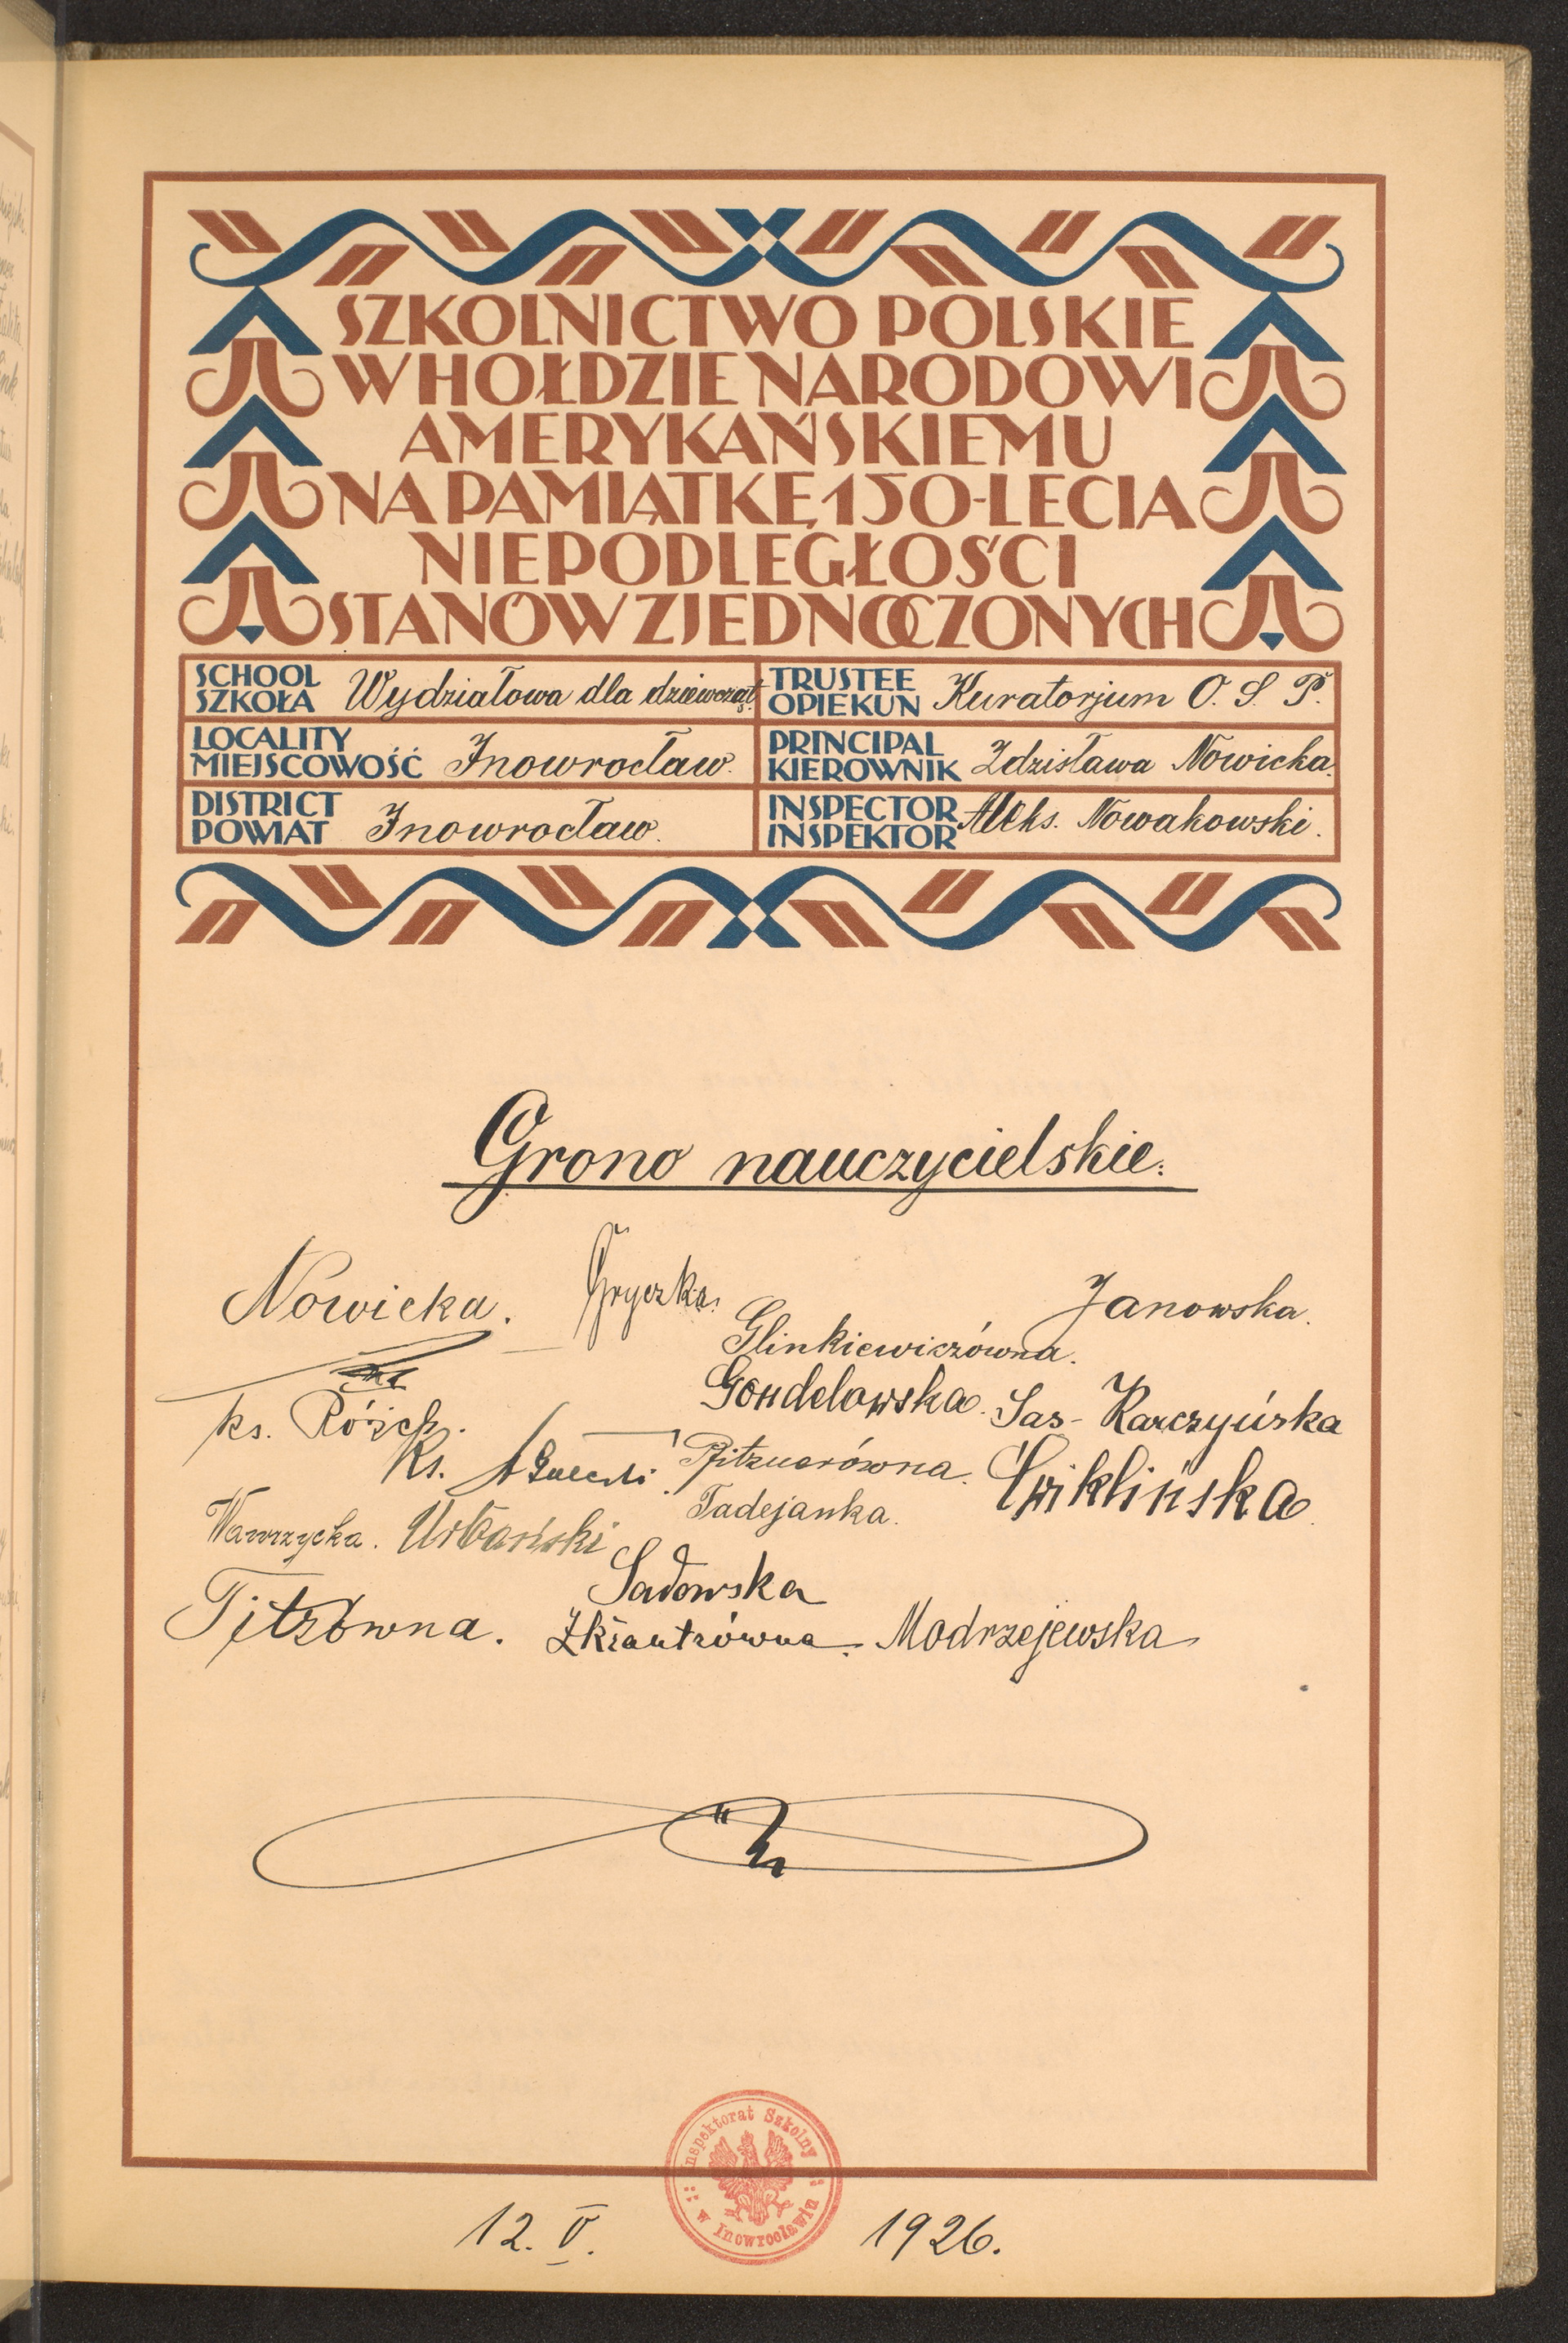 SZKOLNICTWO POLSKIE
W HOŁDZIE NARODOWI
AMERYKAŃSKIEMU
NA PAMIĄTKĘ 150-LECIA
NIEPODLEGŁOŚCI
STANÓW ZJEDNOCZONYCH
SCHOOL
SZKOŁA Wydziałowa dla dziewcząt.
TRUSTEE
OPIEKUN Kuratorjum O. S. P.
LOCALITY
MIEJSCOWOŚĆ Inowrocław.
PRINCIPAL
KIEROWNIK Zdzisława Nowicka.
DISTRICT
POWIAT Inowrocław.
INSPECTOR
INSPEKTOR Aleks. Nowakowski.
Grono nauczycielskie.
Nowicka.
Gryczka.
Janowska.
Glinkiewiczówna.
Gondelowska.
Sas-Karczyńska
ks.
Ks.
Pfitznerówna.
Ćwiklińska.
Tadejanka.
Wawrzycka.
Urbański
Sadowska
Titzówna.
Modrzejewska
Inspektorat Szkolny
w Inowrocławiu
12. V. 1926.